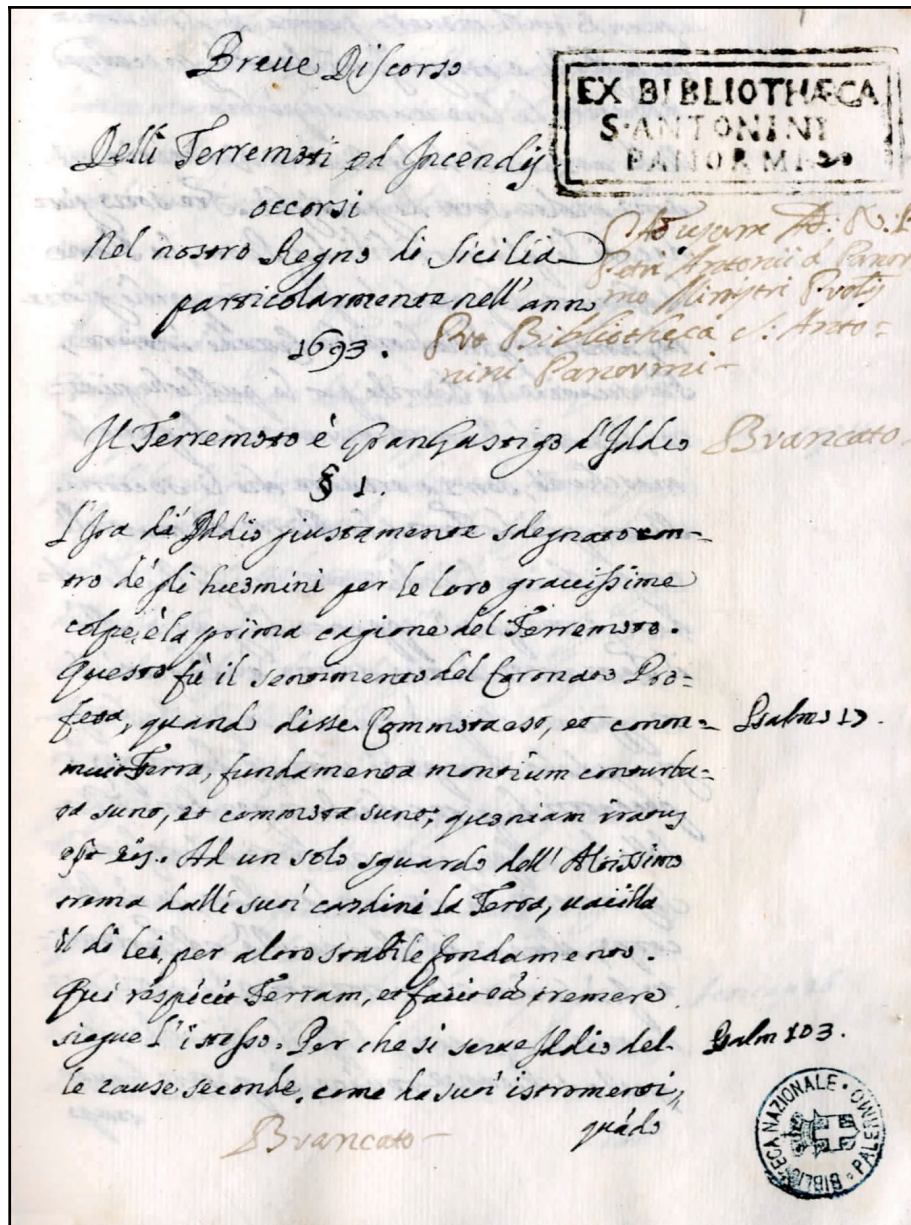 Breue Discorso
Delli Terremoti ed Incendij
occorsi
Nel nostro Regno di Sicilia
particolarmente nell'anno
1693.
EX BIBLIOTHÆCA
S. ANTONINI
PANORMI
Ad usum
Petri Antonii à Panor
mo Minrtri
Pro Bibliotheca S: Anto=
nini Panormi
Il Terremoto è Gran Gastigo d'Iddio
Brancato
§ 1.
L'Ira di Iddio giustamente sdegnato con=
tro de gli huomini per le loro grauissime
colpe, è la prima cagione del Terremoto.
Questo fù il sentimento del Coronato Pro=
feta, quando disse. Commota est, et contre=
muit Terra, fundamenta montium conturba=
ta sunt, et commota sunt; quoniam iratus
est eis. Ad un solo sguardo dell'Altissimo
trema dalli suoi cardini la Terra, uacilla
il di lei, per altro stabile fondamento.
Qui respicit Terram, et facit eà tremere
siegue l'istesso. Per che si serue Iddio del=
le cause seconde, come ha suoi istromenti,
quãdo
Psalmo 17.
Psalm 103.
Brancato
BIBLIOTECA NAZIONALE · PALERMO